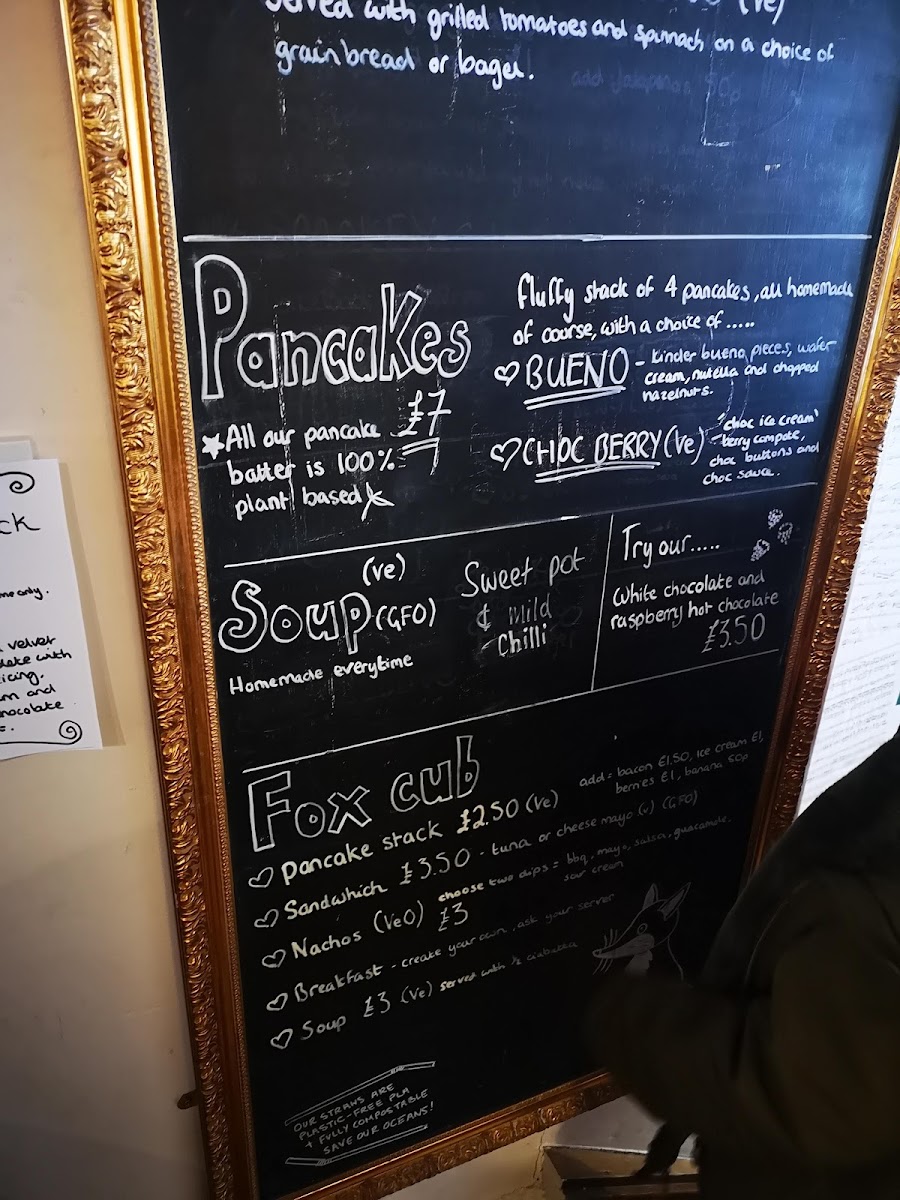 served with grilled tomatoes and spinach on a choice of
grain bread or bagel.
add jalapenos 50p
Pancakes
£7
★All our pancake
batter is 100%
plant based
fluffy stack of 4 pancakes, all homemade
of course, with a choice of .....
♡ BUENO - kinder bueno pieces, wafer
cream, nutella and chopped
hazelnuts.
♡ CHOC BERRY (ve) - "choc ice cream"
berry compote,
choc buttons and
choc sauce.
(ve)
Soup (GFO)
Homemade everytime
Sweet pot
& mild
Chilli
Try our.....
White chocolate and
raspberry hot chocolate
£3.50
Fox cub
♡ pancake stack £2.50 (ve)
add = bacon £1.50, ice cream £1,
berries £1, banana 50p
♡ Sandwhich £3.50 - tuna or cheese mayo (v) (GFO)
♡ Nachos (VeO) £3
choose two dips = bbq, mayo, salsa, guacamole,
sour cream
♡ Breakfast - create your own, ask your server
♡ Soup £3 (ve) served with ½ ciabatta
OUR STRAWS ARE
PLASTIC-FREE PLA
+ FULLY COMPOSTABLE
SAVE OUR OCEANS!
ck
only.
velvet
with
icing.
and